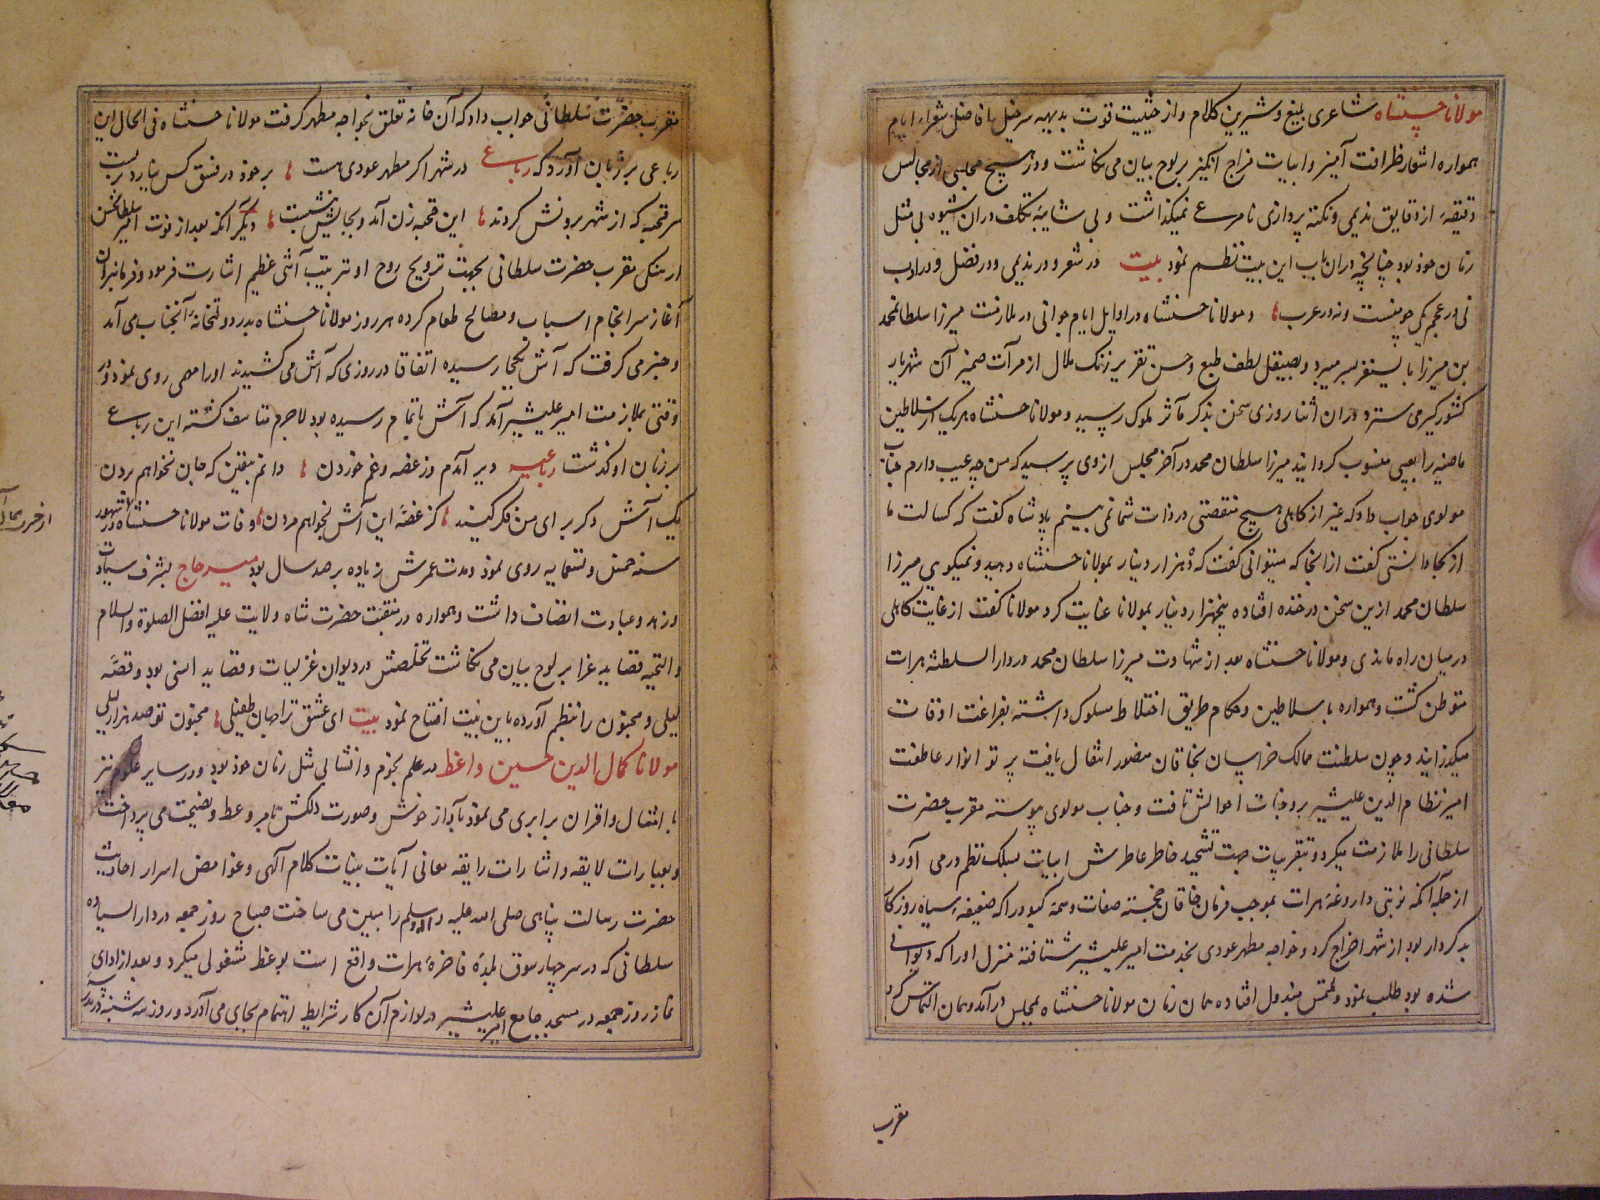 مولانا حسنشاه شاعری بلیغ و شیرین کلام و از حیثیت قوت بدیهه سرخیل افاضل شعراء ایام
همواره اشعار ظرافت آمیز و ابیات مزاج انگیز بر لوح بیان می نکاشت و در هیچ مجلسی از مجالس
دقیقه از دقایق ندیمی و نکته پردازی نامرعی نمیکذاشت و بی شایبهٔ تکلف در ان شیوه بی مثل
زمان خود بود چنانچه در ان باب این بیت نظم نمود بیت در شعر و در ندیمی و در فضل و در ادب
نی در عجم یکی چو منست و نه در عرب و مولانا حسنشاه در اوایل ایام جوانی در ملازمت میرزا سلطانمحمد
بن میرزا بایسنغر بسر میبرد و بصیقل لطف طبع و حسن تقریر زنک ملال از مرآت ضمیر آن شهریار
کشورکیر می سترد در ان اثنا روزی سخن بذکر مآثر ملوک رسید و مولانا حسنشاه هریک از سلاطین
ماضیه را بعیبی منسوب کردانید میرزا سلطان محمد در آخر مجلس از وی پرسید که من چه عیب دارم جناب
مولوی جواب داد که غیر از کاهلی هیچ منقصتی در ذات شما نمی بینم پادشاه کفت که کسالت ما
از کجا دانستی کفت از انجا که میتوانی کفت که ده هزار دینار بمولانا حسنشاه دهید و نمیکویی میرزا
سلطان محمد ازین سخن در خنده افتاده پنجهزار دینار بمولانا عنایت کرد مولانا کفت از غایت کاهلی
در میان راه ماندی و مولانا حسنشاه بعد از شهادت میرزا سلطان محمد در دار السلطنهٔ هرات
متوطن کشت و همواره با سلاطین و حکام طریق اختلاط مسلوک داشته بفراغت اوقات
میکذرانید و چون سلطنت ممالک خراسان بخاقان منصور انتقال یافت پرتو انوار عاطفت
امیر نظام الدین علیشیر بر وجنات احوالش تافت و جناب مولوی پیوسته مقرب حضرت
سلطانی را ملازمت میکرد و بتقریبات جهت تشحیذ خاطر عاطرش ابیات بسلک نظم در می آورد
از جمله آنکه نوبتی داروغهٔ هرات بموجب فرمان خاقان خجسته صفات وسمه کبود را که ضعیفه سیاه روزکار
بدکردار بود از شهر اخراج کرد و خواجه مطهر عودی بخدمت امیر علیشیر شتافته منزل او را که دیوانی
شده بود طلب نمود و ملتمس مبذول افتاده همان زمان مولانا حسنشاه بمجلس درآمد و همان التماس کرد
مقرب
مقرب حضرت سلطانی جواب داد که آن خانه تعلق بخواجه مطهر کرفت مولانا حسنشاه فی الحال این
رباعی بر زبان آورد که رباعی در شهر اکر مطهر عودی هست بر خود در فسق کس نیارد بست
سر قحبه که از شهر برونش کردند این قحبه زن آمد و بجایش بنشست دیکر آنکه بعد از فوت امیر سلطانحسن
ارهنکی مقرب حضرت سلطانی بجهت ترویح روح او ترتیب آشی عظیم اشارت فرمود و فرمانبران
آغاز سرانجام اسباب و مصالح طعام کرده هر روز مولانا حسنشاه بدر دولتخانهٔ آنجناب می آمد
و خبر می کرفت که آش بکجا رسیده اتفاقا در روزی که آش می کشیدند او را مهمی روی نمود و در
وقتی بملازمت امیر علیشیر آمد که آش باتمام رسیده بود لاجرم متاسف کشته این رباعی
بر زبان او کذشت رباعیه دیر آمدم و ز غصه و غم خوردن دانم بیقین که جان نخواهم بردن
یک آش دکر برای من فکر کنید کز غصهٔ این آش نخواهم مردن وفات مولانا حسنشاه در شهور
سنه خمس و تسعمایه روی نمود و مدت عمرش زیاده بر صد سال بود میر حاج بشرف سیادت
و زهد و عبادت اتصاف داشت و همواره در منقبت حضرت شاه ولایت علیه افضل الصلوة والسلام
والتحیه قصاید غرا بر لوح بیان می نکاشت تخلصش در دیوان غزلیات و قصاید انسی بود و قصهٔ
لیلی و مجنون را بنظم آورده باین بیت افتتاح نمود بیت ای عشق ترا جهان طفیلی مجنون تو صد هزار لیلی
مولانا کمال الدین حسین واعظ در علم نجوم و انشا بی مثل زمان خود بود و در سایر علوم نیز
با امثال و اقران برابری می نمود بآواز خوش و صورت دلکش بامر وعظ و نصیحت می پرداخت
و بعبارات لایقه و اشارات رایقه معانی آیات بینات کلام الهی و غوامض اسرار احادیث
حضرت رسالت پناهی صلی الله علیه و آله وسلم را مبین می ساخت صباح روز جمعه در دار السیاده
سلطانی که در سر چهارسوق بلدهٔ فاخرهٔ هرات واقع است بوعظ مشغولی میکرد و بعد از ادای
نماز روز جمعه در مسجد جامع امیر علیشیر در لوازم آن کار شرایط اهتمام بجای می آورد و روز سه شنبه در مدرسه